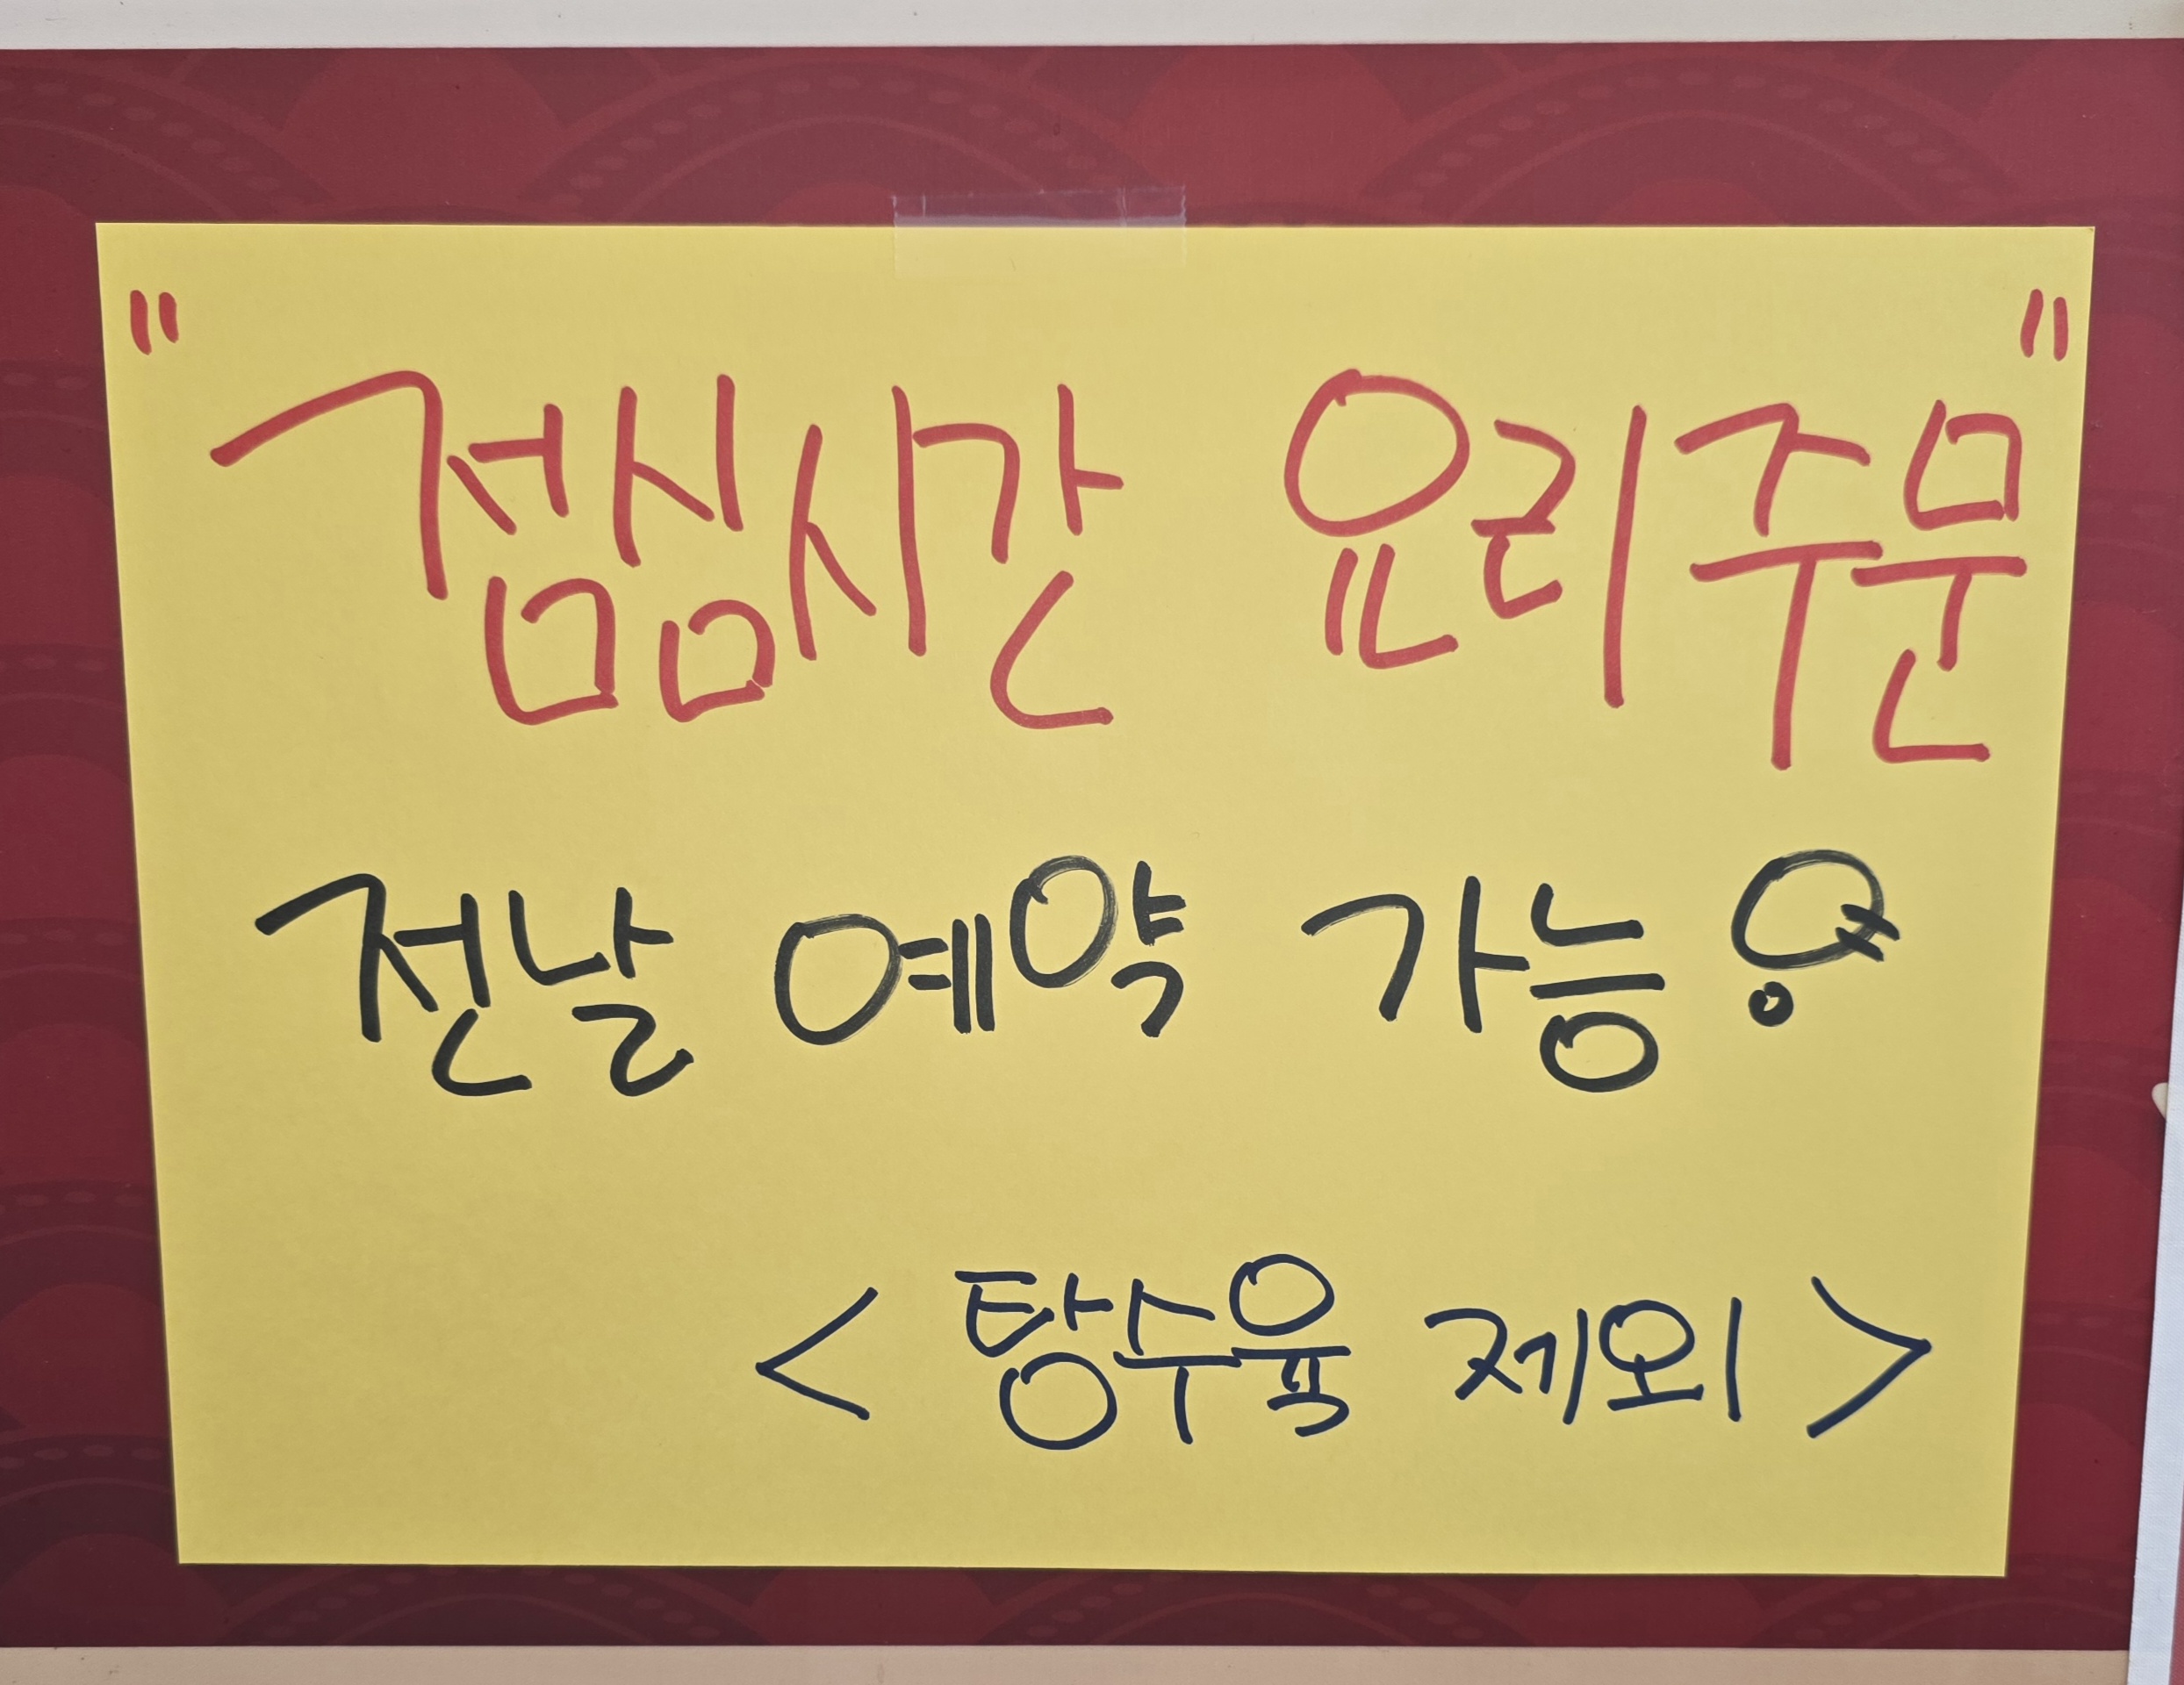 "점심시간 요리주문"
전날 예약 가능
<탕수육 제외>